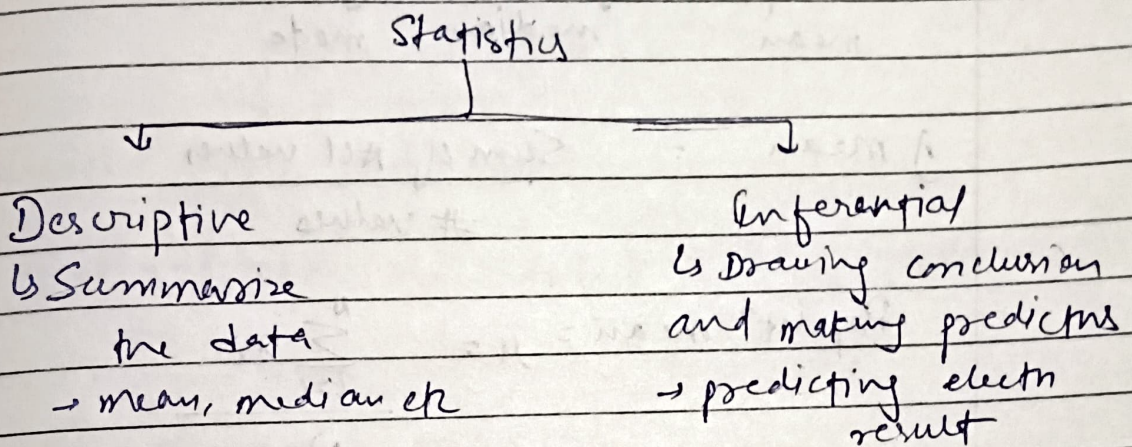 Statistics
Descriptive
↳ Summarize
the data
→ mean, median etc
Inferential
↳ Drawing conclusion
and making predictns
→ predicting electn
result